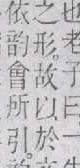 也老子曰一
之形故以於
依韵會所引